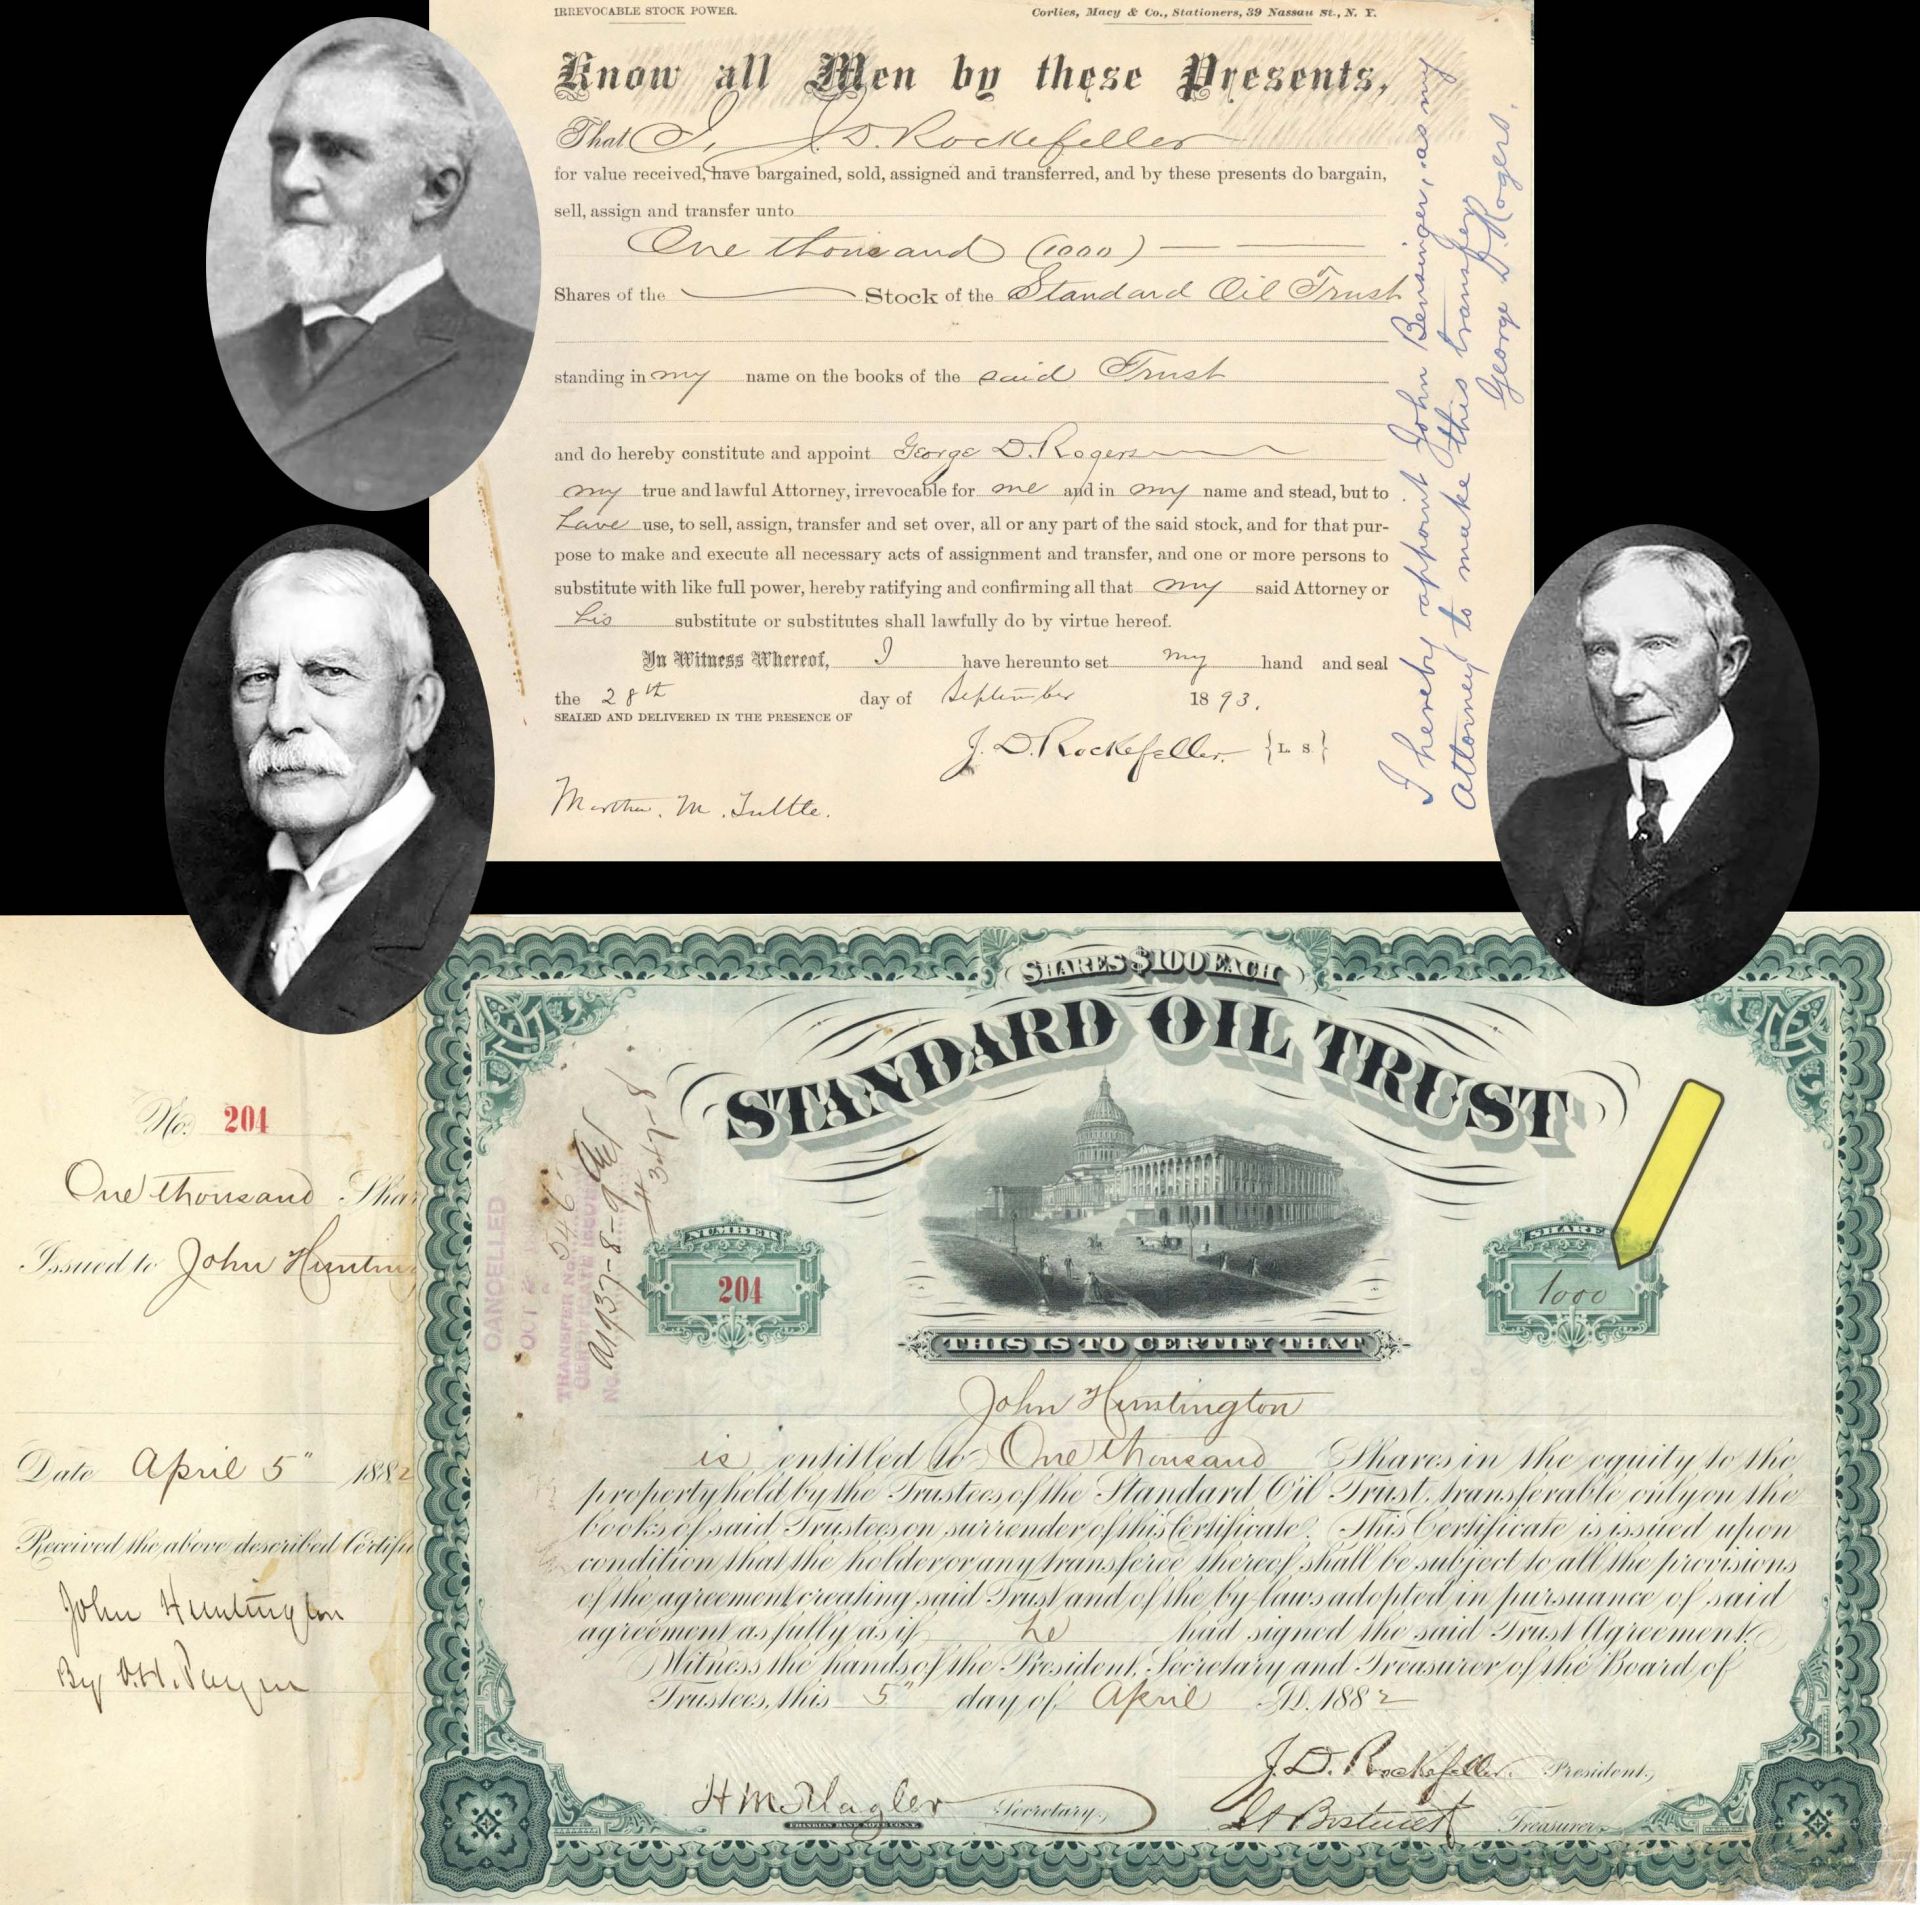 IRREVOCABLE STOCK POWER.
Corlies, Macy & Co., Stationers, 39 Nassau St., N. Y.
Know all Men by these Presents,
That I, J. D. Rockefeller
for value received, have bargained, sold, assigned and transferred, and by these presents do bargain,
sell, assign and transfer unto
One thousand (1000)
Shares of the Stock of the Standard Oil Trust
standing in my name on the books of the said Trust
and do hereby constitute and appoint George D. Rogers
my true and lawful Attorney, irrevocable for me and in my name and stead, but to
have use, to sell, assign, transfer and set over, all or any part of the said stock, and for that pur-
pose to make and execute all necessary acts of assignment and transfer, and one or more persons to
substitute with like full power, hereby ratifying and confirming all that my said Attorney or
his substitute or substitutes shall lawfully do by virtue hereof.
In Witness Whereof, I have hereunto set my hand and seal
the 28th day of September 1893.
SEALED AND DELIVERED IN THE PRESENCE OF
J. D. Rockefeller. {L. S.}
Martha. M. Tuttle.
I hereby appoint John Bensinger, as my
attorney to make this transfer
George D. Rogers.
No. 204
One thousand Shar
Issued to John Huntin
Date April 5" 1882
Received the above described Certifi
John Huntington
By O. H. Payne
SHARES $100 EACH
STANDARD OIL TRUST
CANCELLED
OCT
TRANSFER No. 546
CERTIFICATE ISSUED
No. A1937-8-9
# 347-8
NUMBER
204
SHARES
1000
THIS IS TO CERTIFY THAT
John Huntington
is entitled to One thousand Shares in the equity to the
property held by the Trustees of the Standard Oil Trust, transferable only on the
books of said Trustees on surrender of this Certificate. This Certificate is issued upon
condition that the holder or any transferee thereof shall be subject to all the provisions
of the agreement creating said Trust and of the by-laws adopted in pursuance of said
agreement as fully as if he had signed the said Trust Agreement.
Witness the hands of the President, Secretary and Treasurer of the Board of
Trustees, this 5" day of April A.D. 1882
J. D. Rockefeller. President,
H M Flagler Secretary,
FRANKLIN BANK NOTE CO. N.Y.
Bostwick Treasurer.